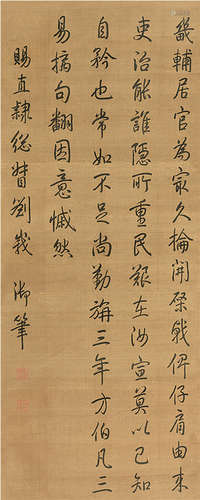 畿輔居官為家久掄開棨戟俾仔肩由来
吏治能誰隱所重民艱在汝宣莫以已知
自矜也常如不足尚勤旃三年方伯凡三
易摛句翻因意慽然
賜直隸総督劉峩 御筆